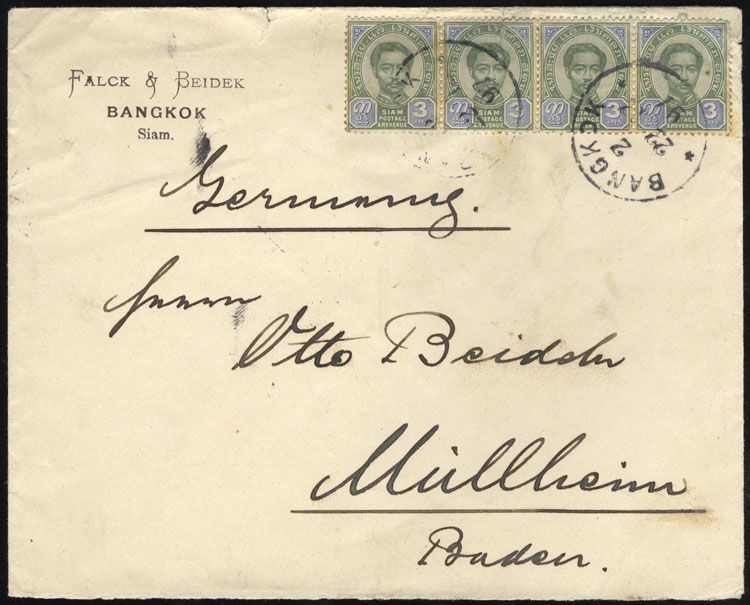 FALCK & BEIDEK
BANGKOK
Siam.
๓ SIAM POSTAGE & REVENUE 3
๓ SIAM POSTAGE & REVENUE 3
๓ SIAM POSTAGE & REVENUE 3
๓ SIAM POSTAGE & REVENUE 3
BANGKOK
2
Germany.
Herrn
Otto Beidek
Müllheim
Baden.